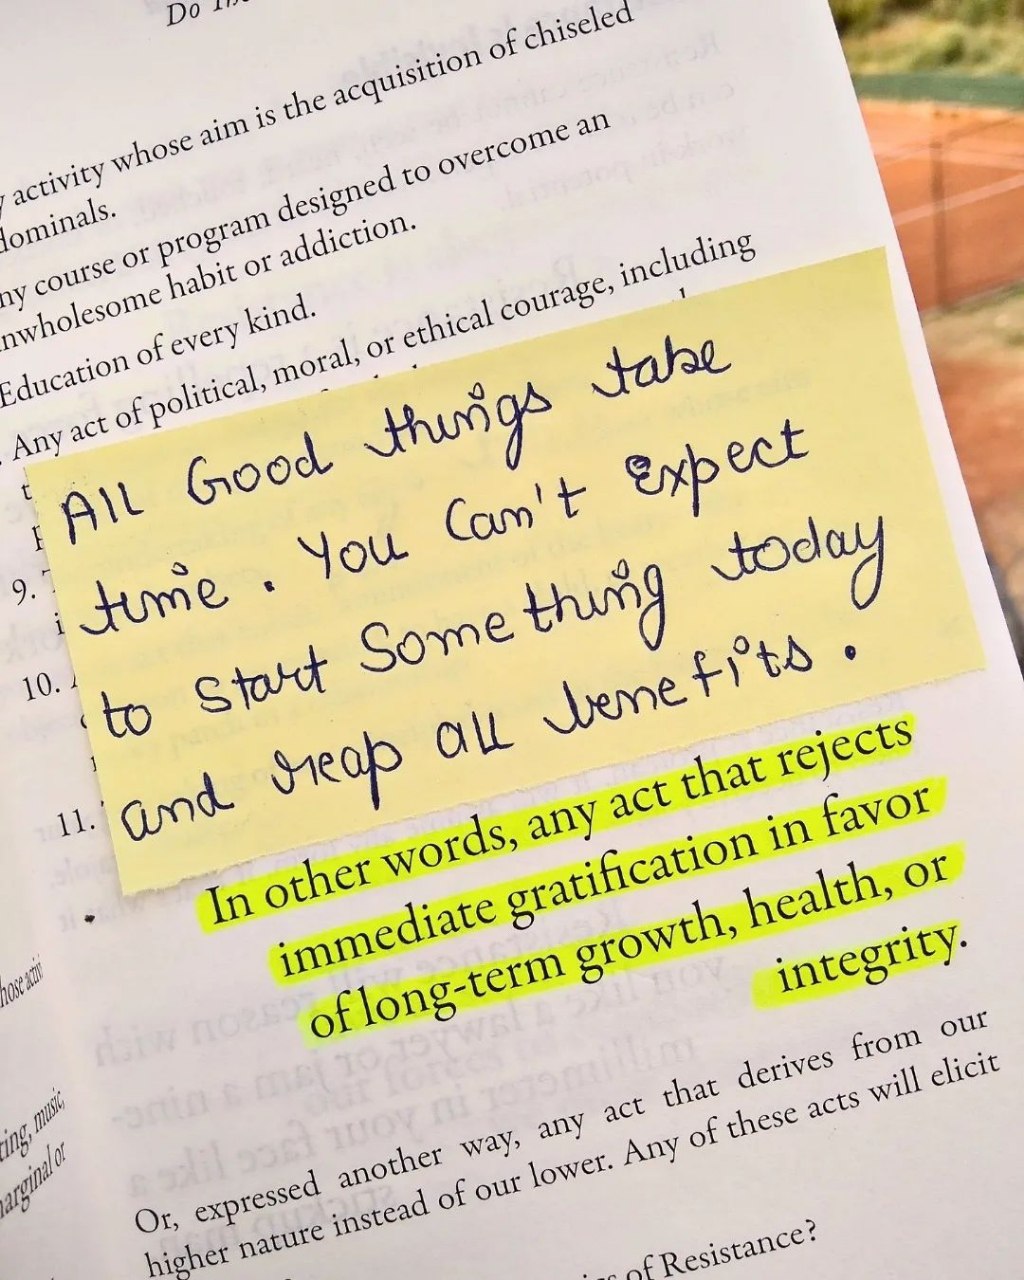 Do
activity whose aim is the acquisition of chiseled
course or program designed to overcome an
habit or addiction.
Education of every kind.
Any act of political, moral, or ethical courage, including
All Good things take
time. You Can't Expect
to Start Something today
and reap all benefits.
9.
10.
11.
In other words, any act that rejects
immediate gratification in favor
of long-term growth, health, or
integrity.
Or, expressed another way, any act that derives from our
higher nature instead of our lower. Any of these acts will elicit
of Resistance?
music,
or